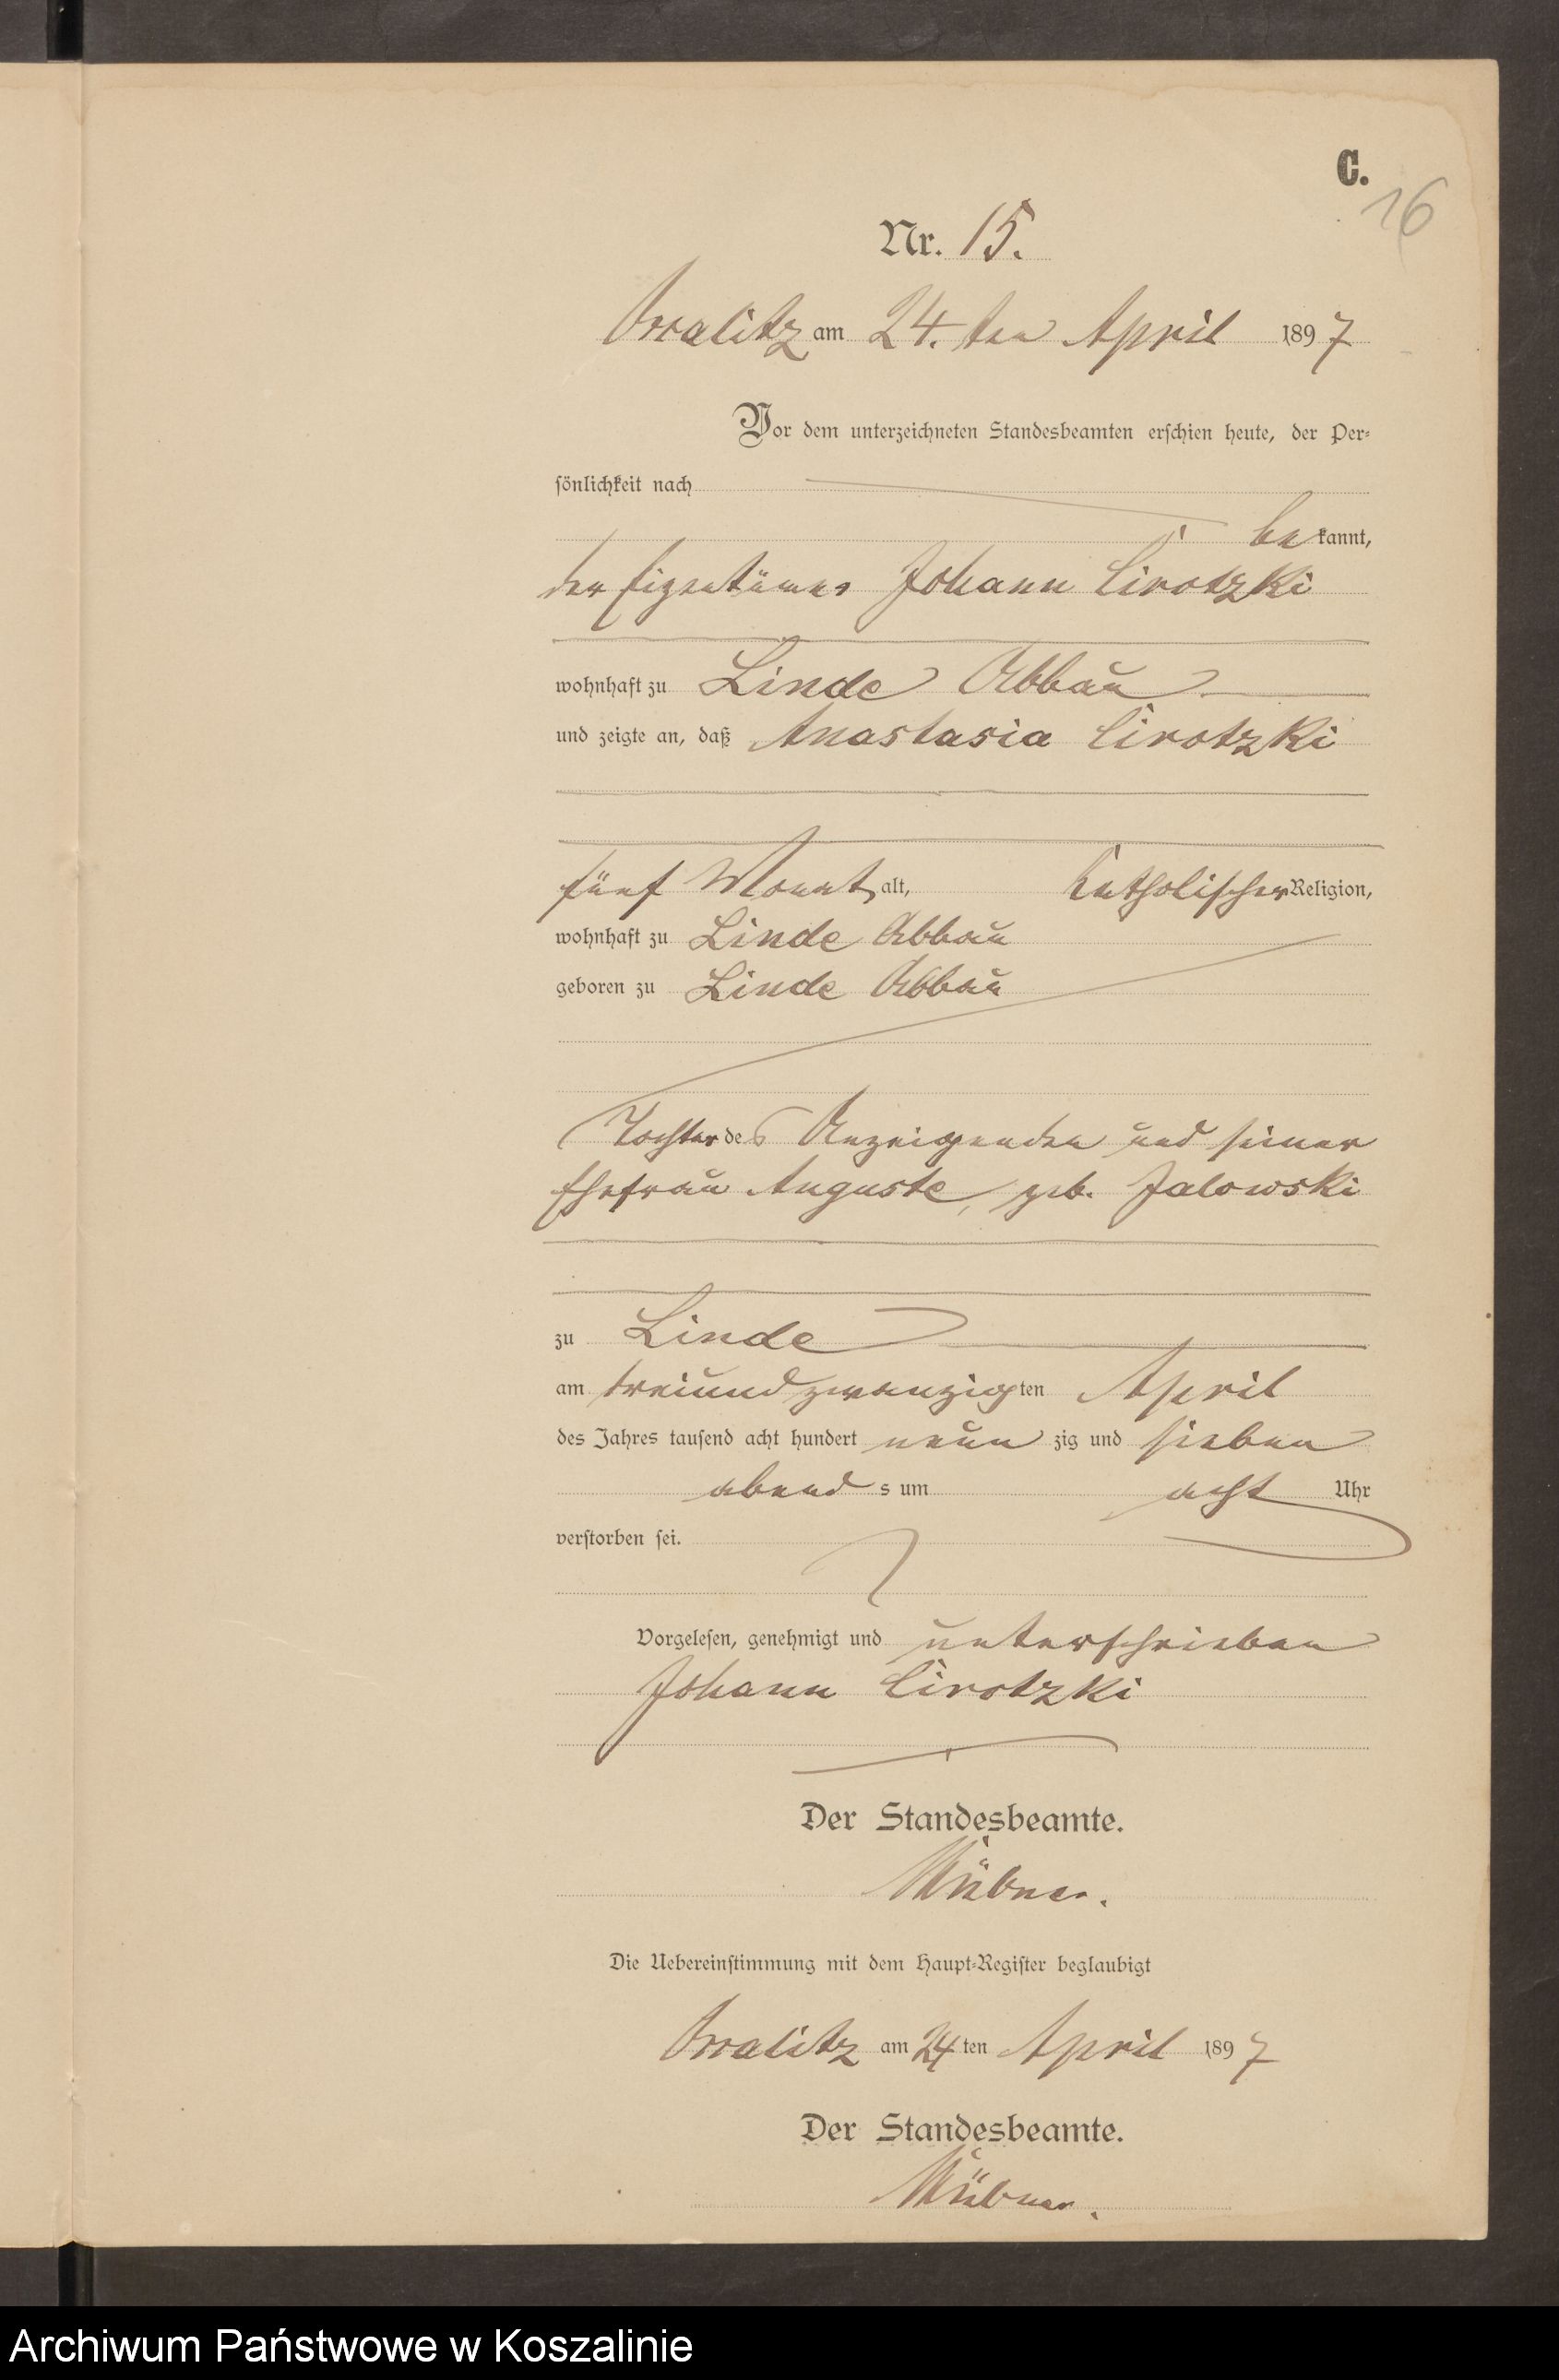 C.
16
Nr. 15.
am 24. ten April 1897
Vor dem unterzeichneten Standesbeamten erschien heute, der Per-
sönlichkeit nach
bekannt,
der Eigentümer Johann Cirotzki
wohnhaft zu Linde Abbau
und zeigte an, daß Anastasia Cirotzki
fünf Monat alt, katholischer Religion,
wohnhaft zu Linde Abbau
geboren zu Linde Abbau
Tochter des Anzeigenden und seiner
Ehefrau Auguste, geb. Jalowski
zu Linde
am dreiundzwanzigten April
des Jahres tausend acht hundert neunzig und sieben
abends um acht Uhr
verstorben sei.
Vorgelesen, genehmigt und unterschrieben
Johann Cirotzki
Der Standesbeamte.
Die Uebereinstimmung mit dem Haupt-Register beglaubigt
am 24 ten April 1897
Der Standesbeamte.
Archiwum Państwowe w Koszalinie